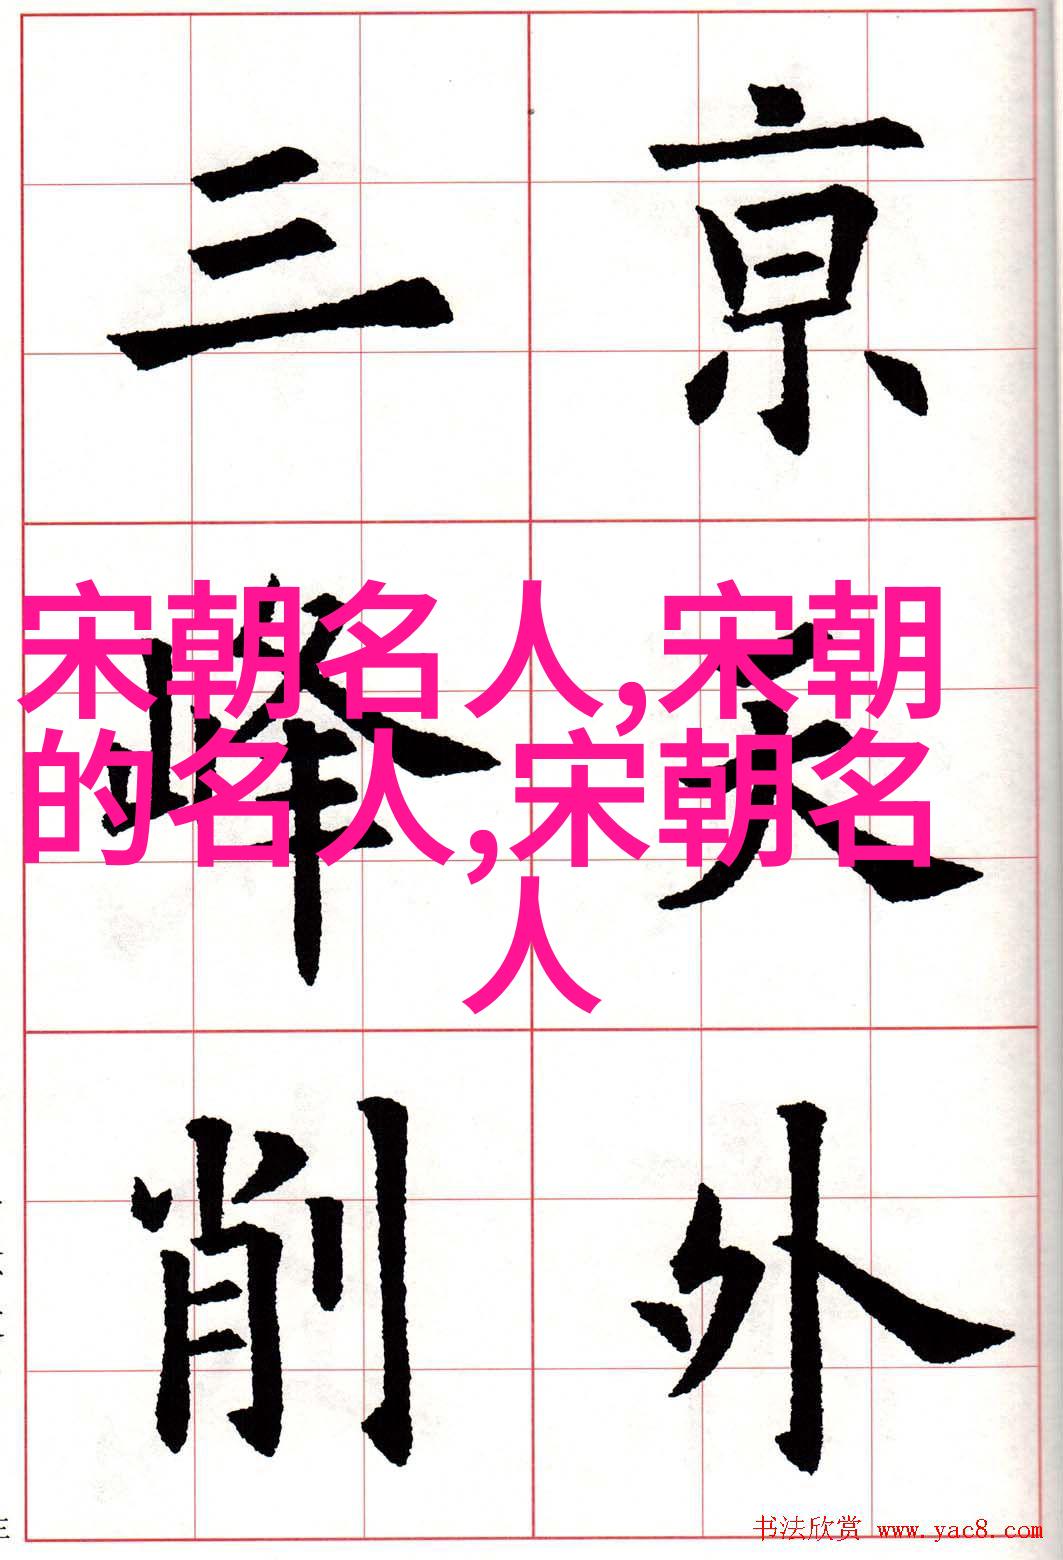 亰天外
三峰削
宋朝名人,宋朝
的名人,宋朝名
人
书法欣赏 www.yac8.com